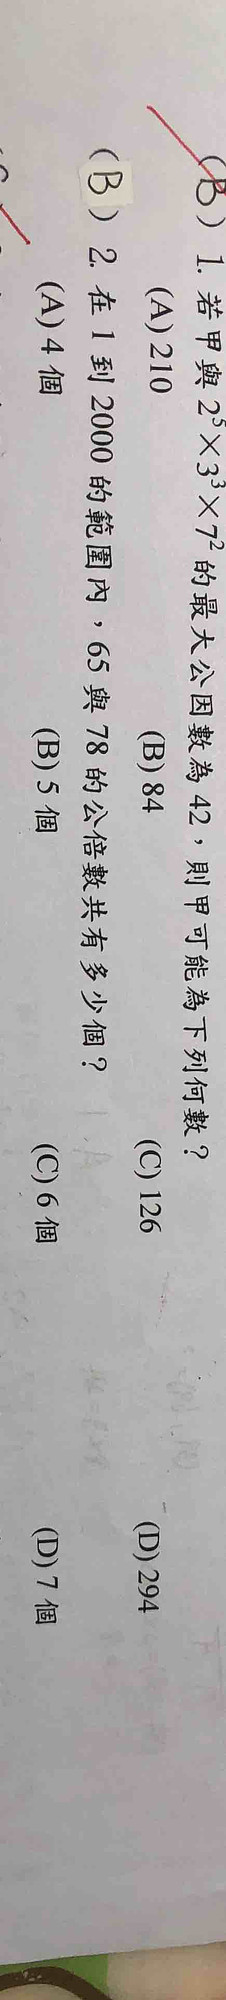 (B) 1. 若甲與 2⁵×3³×7² 的最大公因數為 42，則甲可能為下列何數？
(A) 210 (B) 84 (C) 126 (D) 294
(B) 2. 在 1 到 2000 的範圍內，65 與 78 的公倍數共有多少個？
(A) 4 個 (B) 5 個 (C) 6 個 (D) 7 個